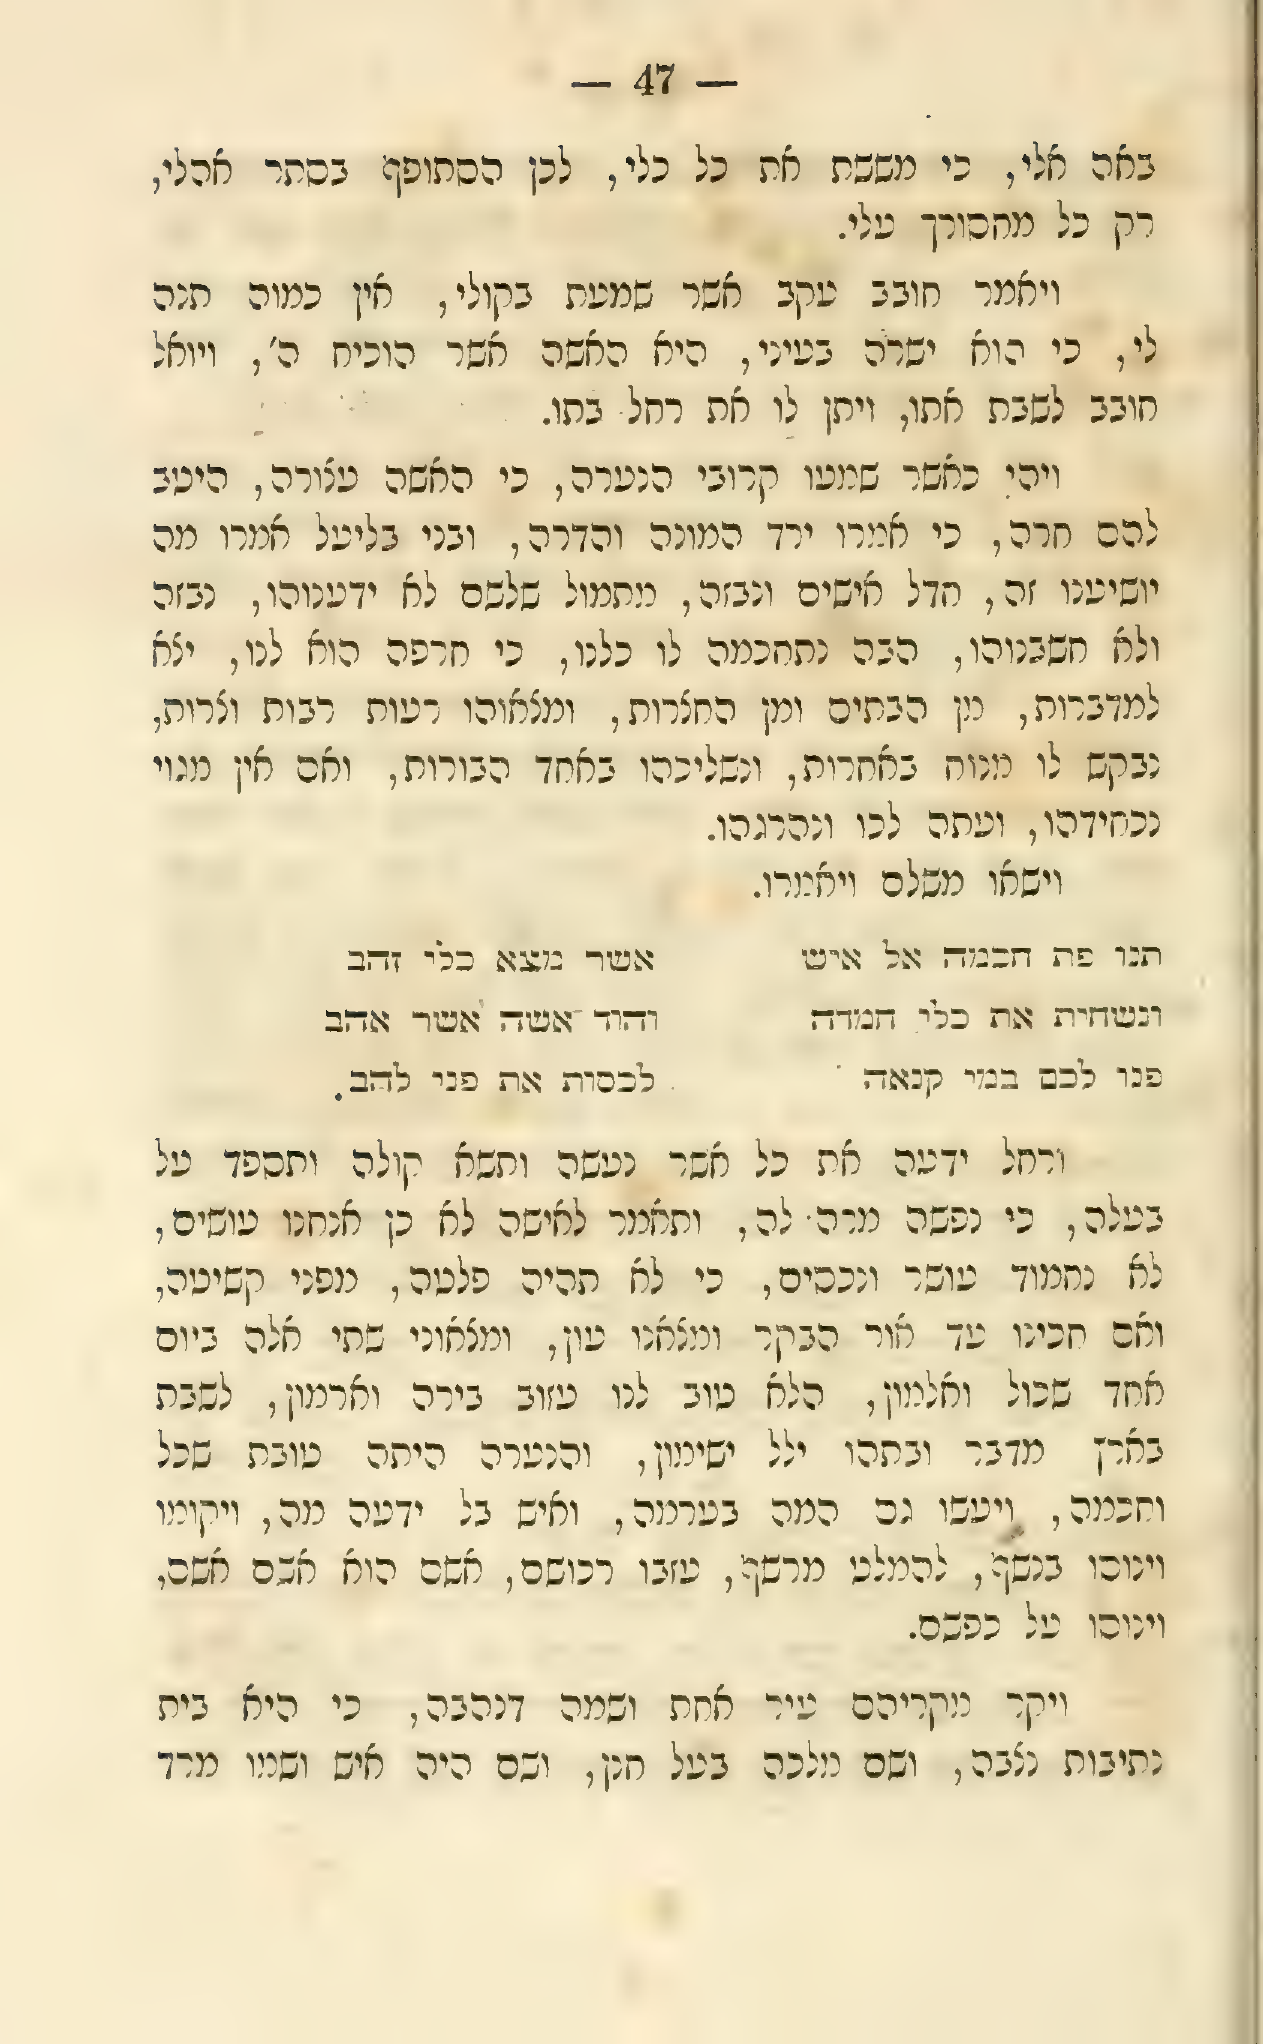 — 47 —
באה אלי, כי מששת את כל כלי, לכן הסתופף בסתר אהלי,
רק כל מחסורך עלי.
ויאמר חובב עקב אשר שמעת בקולי, אין כמוה תנה
לי, כי הוא ישרה בעיני, היא האשה אשר הוכיח ה', ויואל
חובב לשבת אתו, ויתן לו את רחל בתו.
ויהי כאשר שמעו קרובי הנערה, כי האשה עצורה, היטב
להם חרה, כי אמרו ירד המונה והדרה, ובני בליעל אמרו מה
יושיענו זה, חדל אישים ונבזה, מתמול שלשם לא ידענוהו, נבזה
ולא חשבנוהו, הבה נתחכמה לו כלנו, כי חרפה הוא לנו, יצא
למדברות, מן הבתים ומן החצרות, ומצאוהו רעות רבות וצרות,
נבקש לו מנוח באחרות, ונשליכהו באחד הבורות, ואם אין מגוי
נכחידהו, ועתה לכו ונהרגהו.
וישאו משלם ויאמרו.
תנו פת חכמה אל איש אשר מצא כלי זהב
ונשחית את כלי חמדה והוד אשה אשר אהב
פנו לכם במי קנאה לכסות את פני להב.
ורחל ידעה את כל אשר נעשה ותשא קולה ותספד על
בעלה, כי נפשה מרה לה, ותאמר לאישה לא כן אנחנו עושים,
לא נחמוד עושר ונכסים, כי לא תהיה פלטה, מפני קשיטה,
ואם חכינו עד אור הבקר ומצאנו עון, ומצאוני שתי אלה ביום
אחד שכול ואלמון, הלא טוב לנו עזוב בירה וארמון, לשבת
בארץ מדבר ובתהו ילל ישימון, והנערה היתה טובת שכל
וחכמה, ויעשו גם המה בערמה, ואיש בל ידעה מה, ויקומו
וינוסו בנשף, להמלט מרשף, עזבו רכושם, אשם הוא אשם אשם,
וינוסו על נפשם.
ויקר מקריהם עיר אחת ושמה דנהבה, כי היא בית
נתיבות נצבה, ושם מלכה בעל חנן, ושם היה איש ושמו מרד